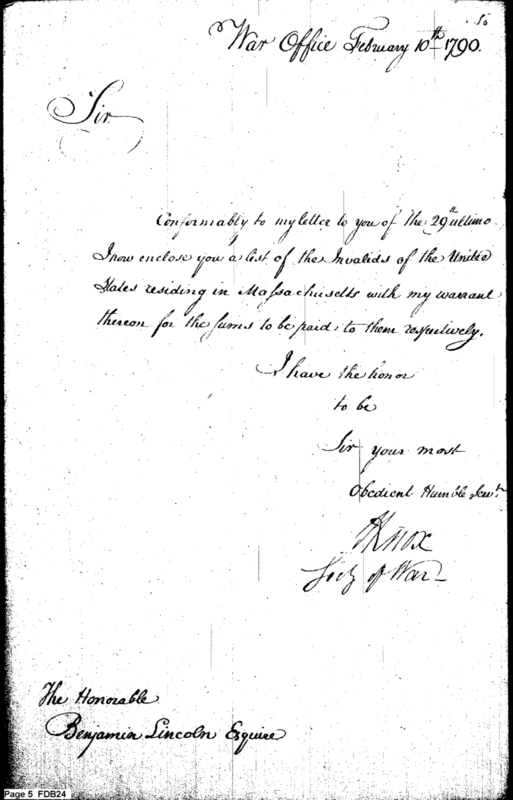 50
War Office February 10th 1790.
Sir
Conformably to my letter to you of the 29th ultimo
I now enclose you a list of the Invalids of the United
States residing in Massachusetts with my warrant
thereon for the sums to be paid to them respectively.
I have the honor
to be
Sir your most
Obedient Humble Servt.
HKnox
Secy of War
The Honorable
Benjamin Lincoln Esquire
Page 5 FDB24